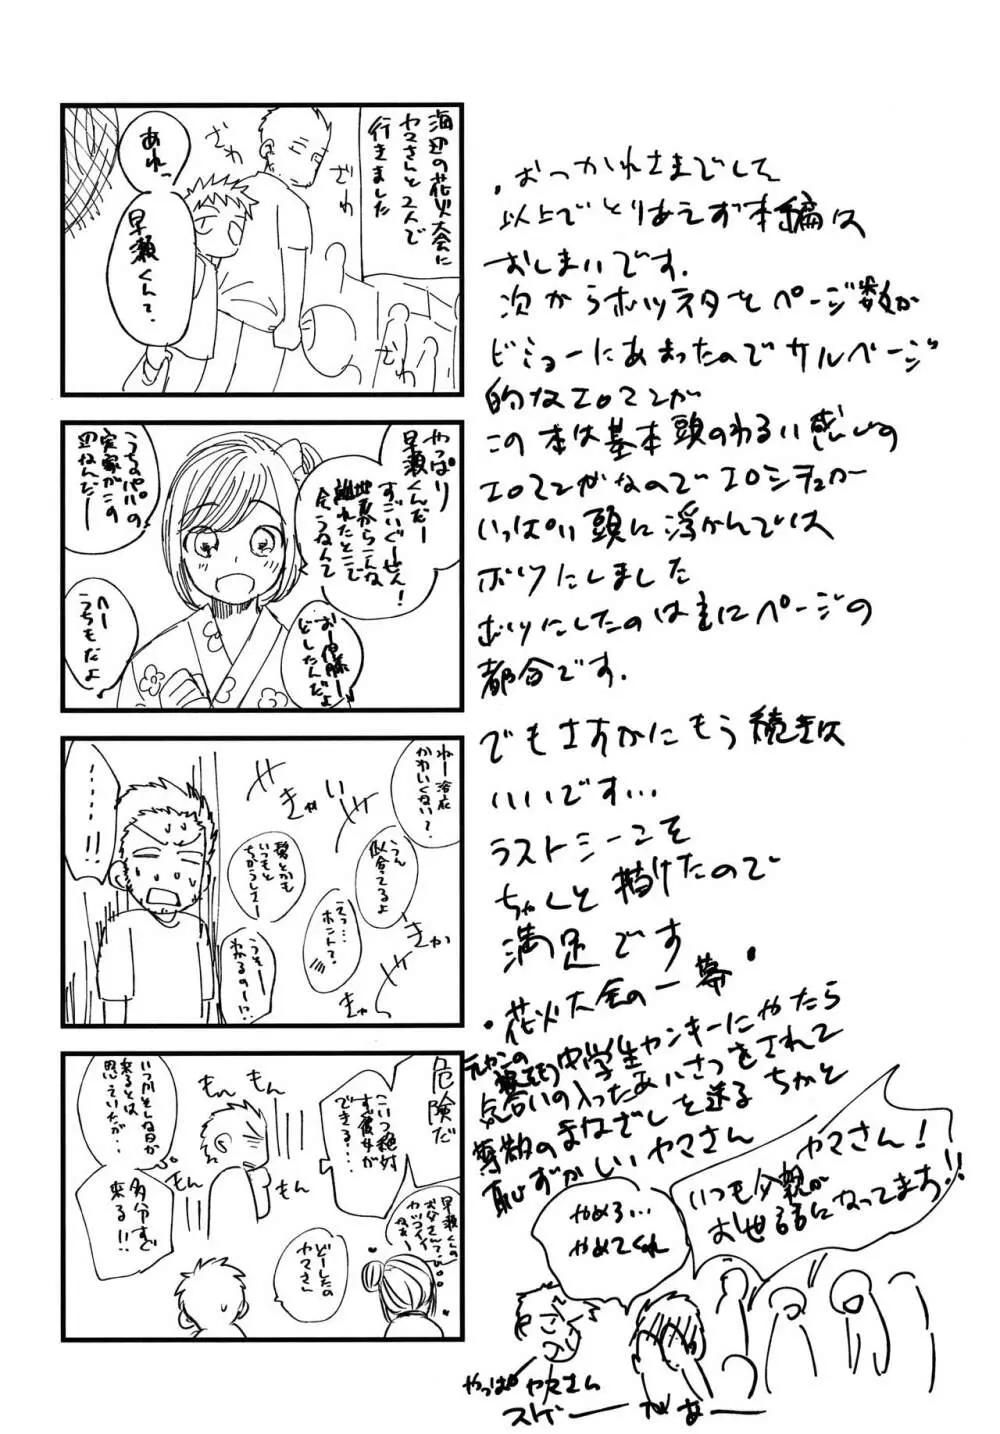 海辺の花火大会に
ヤマさんと2人で
行きました
ざわ
ざわ
ざわ
あれっ
早瀬くんて、
やっぱり
早瀬くんだー
すごいぐーぜん!
地元からこんな
離れたとこで
会うなんて
うちのパパの
実家がこの
辺なんだー
おー伊藤ー
どしたんだよ
へー
うちもだよ
ねー浴衣
かわいくない?
うん
似合ってるよ
髪とかも
いつもと
ちがうしさー
えっ…
ホント?
うそー
わかるのー!?
きゃ
きゃ
きゃ
きゃ
………!!
危険だ
こいつ絶対
すぐ彼女が
できる…
いつかそんな日が
来るとは
思っていたが…
多分すぐ
来る!!
もん
もん
もん
もん
早瀬くんの
お父さんて
カッコイイ
ねぇ
どーしたの
ヤマさん
・おつかれさまでして
以上でとりあえず本編は
おしまいです.
次からボツネタをページ数が
ビミョーにあまったのでサルベージ
的なエロマンガ
この本は基本頭のわるい感じの
エロマンガなのでエロシチュが
いっぱい頭に浮かんでは
ボツにしました
ボツにしたのは主にページの
都合です.
でもさすがにもう続きは
いいです…
ラストシーンこそ
ちゃんと描けたので
満足です
・花火大会の一幕・
中学生ヤンキーにやたら
気合いの入ったあいさつをされて
尊敬のまなざしを送る ちかと
恥ずかしいヤマさん
ヤマさん!
いつも父親が
お世話になってます!!
やめろ…
やめてくれ
やっぱ ヤマさん
スゲー
があー